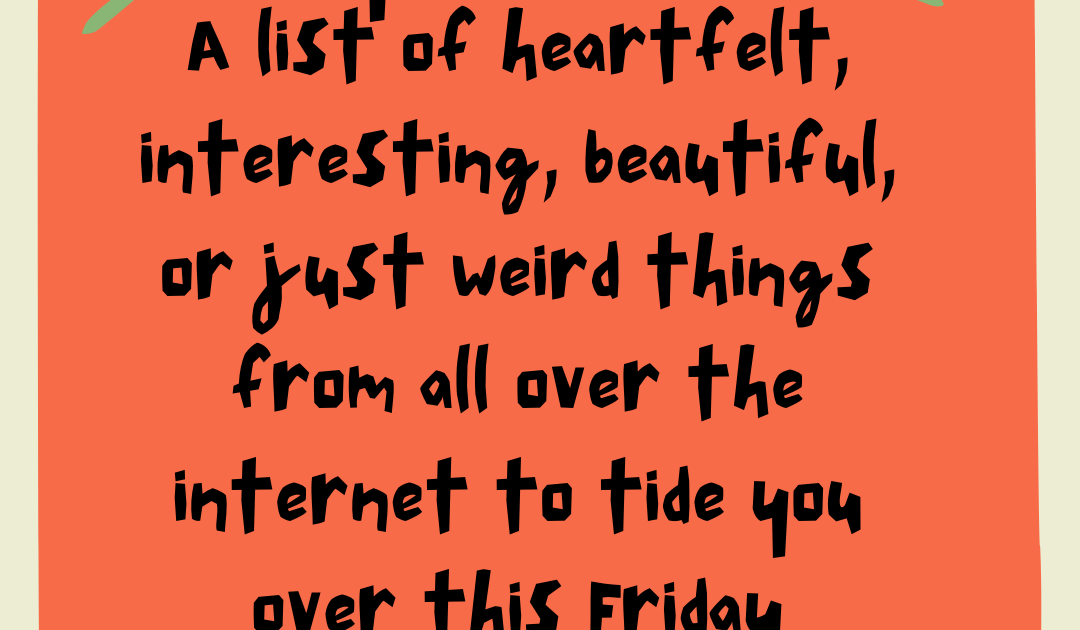 A list of heartfelt,
interesting, beautiful,
or just weird things
from all over the
internet to tide you
over this Friday